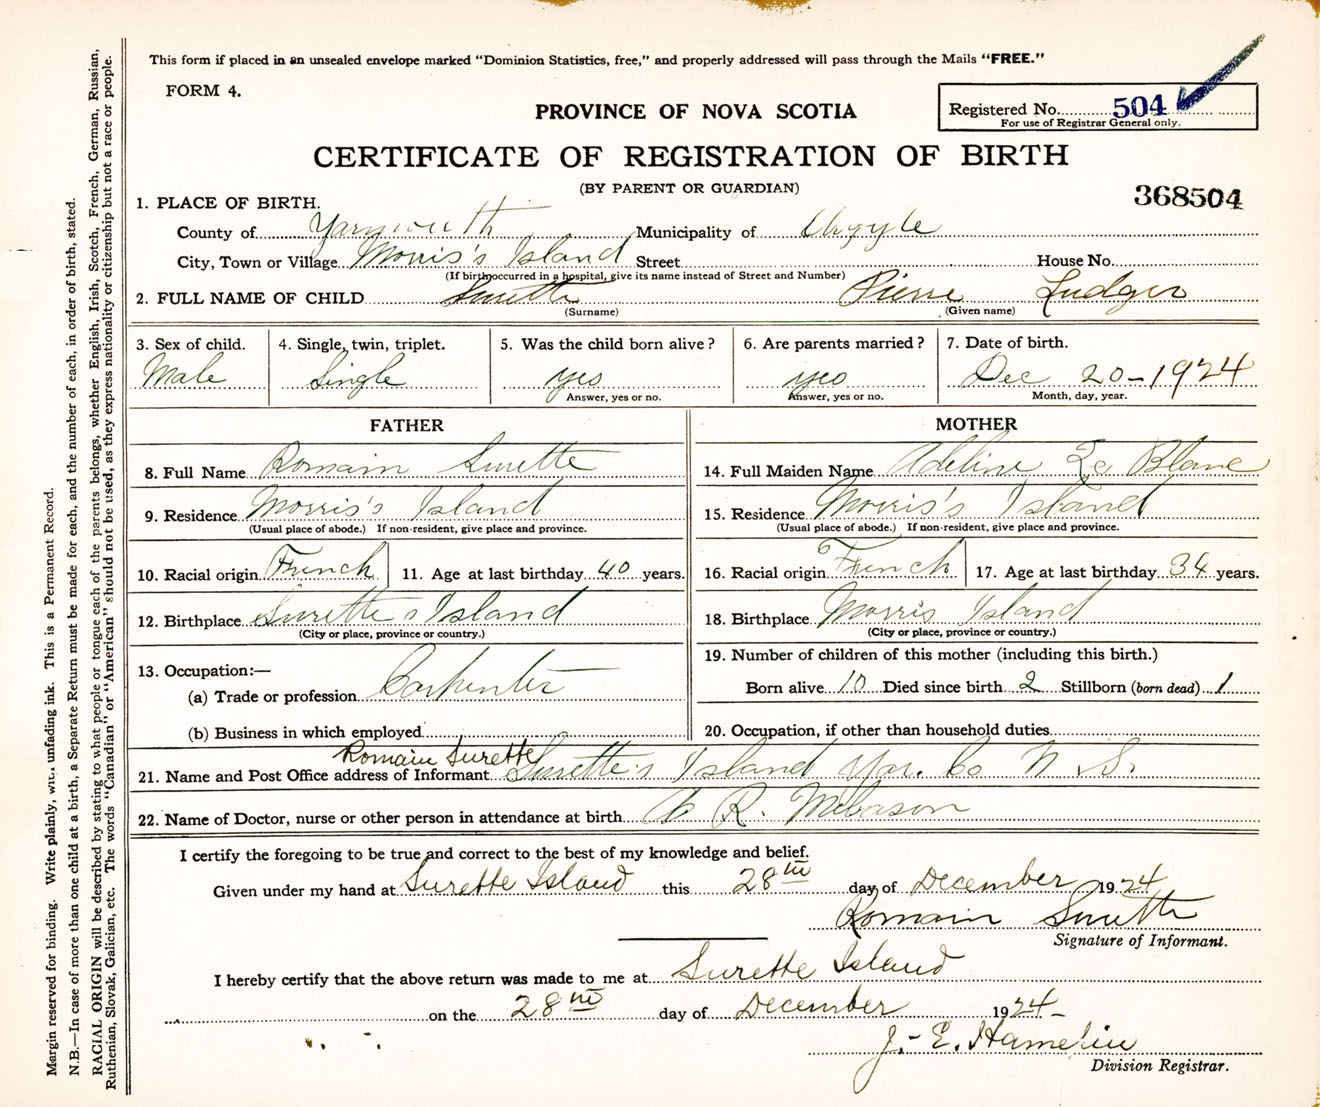 This form if placed in an unsealed envelope marked “Dominion Statistics, free,” and properly addressed will pass through the Mails “FREE.”
FORM 4.
PROVINCE OF NOVA SCOTIA
Registered No. 504
For use of Registrar General only.
CERTIFICATE OF REGISTRATION OF BIRTH
(BY PARENT OR GUARDIAN)
368504
1. PLACE OF BIRTH.
County of Yarmouth Municipality of Argyle
City, Town or Village Morris's Island Street House No.
(If birth occurred in a hospital, give its name instead of Street and Number)
2. FULL NAME OF CHILD Surette Pierre Ludger
(Surname) (Given name)
3. Sex of child. 4. Single, twin, triplet. 5. Was the child born alive? 6. Are parents married? 7. Date of birth.
Male Single yes yes Dec 20-1924
Answer, yes or no. Answer, yes or no. Month, day, year.
FATHER
8. Full Name Romain Surette
9. Residence Morris's Island
(Usual place of abode.) If non-resident, give place and province.
10. Racial origin French 11. Age at last birthday 40 years.
12. Birthplace Surette's Island
(City or place, province or country.)
13. Occupation:—
(a) Trade or profession Carpenter
(b) Business in which employed
MOTHER
14. Full Maiden Name Adeline Le Blanc
15. Residence Morris's Island
(Usual place of abode.) If non-resident, give place and province.
16. Racial origin French 17. Age at last birthday 34 years.
18. Birthplace Morris Island
(City or place, province or country.)
19. Number of children of this mother (including this birth.)
Born alive 10 Died since birth 2 Stillborn (born dead) 1
20. Occupation, if other than household duties
Romain Surette
21. Name and Post Office address of Informant Surette's Island Yar. Co N. S.
22. Name of Doctor, nurse or other person in attendance at birth R.
I certify the foregoing to be true and correct to the best of my knowledge and belief.
Given under my hand at Surette Island this 28th day of December 1924
Romain Surette
Signature of Informant.
I hereby certify that the above return was made to me at Surette Island
on the 28th day of December 1924-
J.-E. Hamelin
Division Registrar.
Margin reserved for binding. Write plainly, with unfading ink. This is a Permanent Record.
N.B.—In case of more than one child at a birth, a Separate Return must be made for each, and the number of each, in order of birth, stated.
RACIAL ORIGIN will be described by stating to what people or tongue each of the parents belongs, whether English, Irish, Scotch, French, German, Russian,
Ruthenian, Slovak, Galician, etc. The words “Canadian” or “American” should not be used, as they express nationality or citizenship but not a race or people.